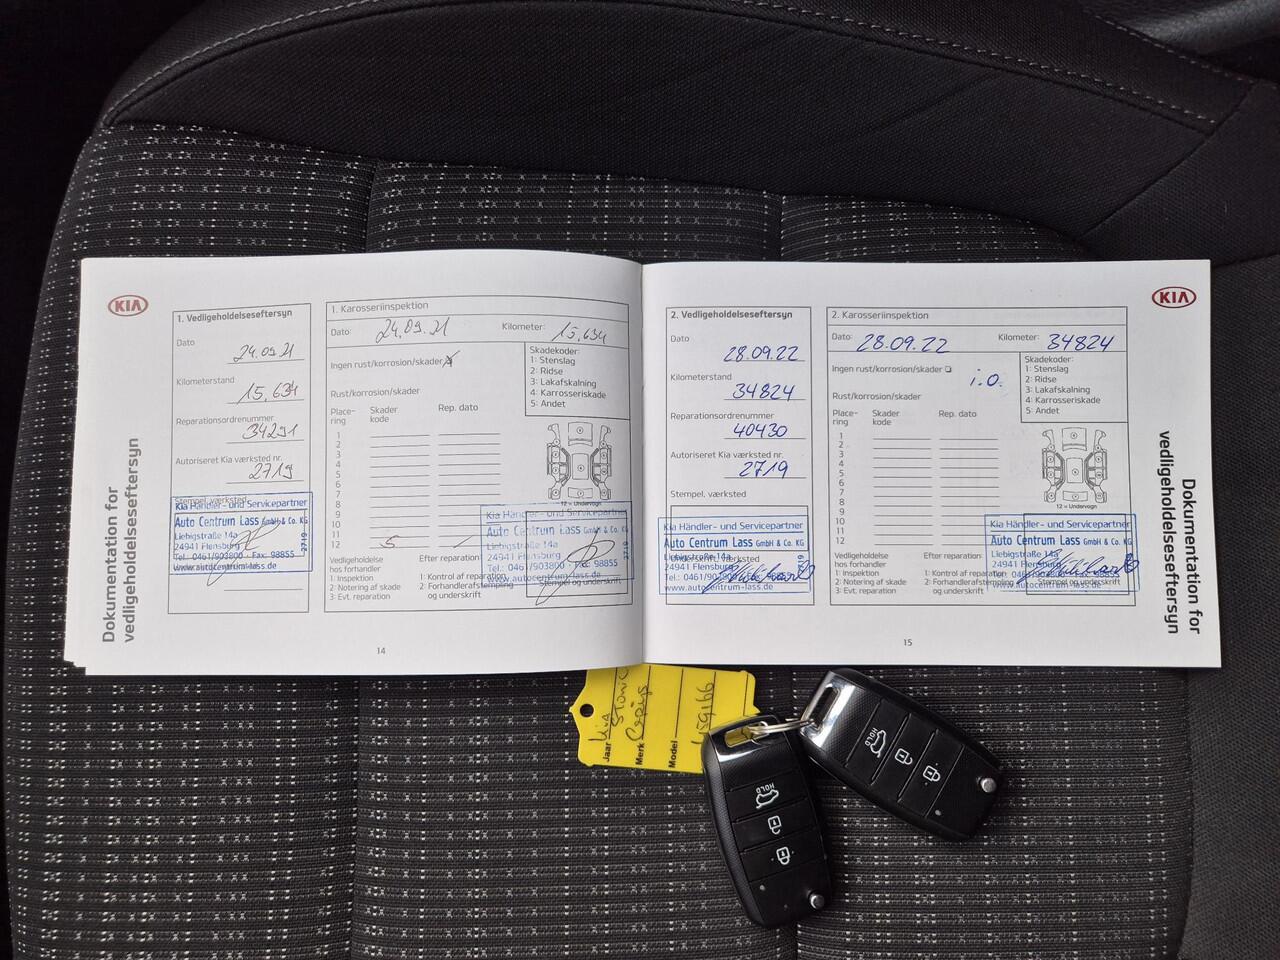 KIA
Dokumentation for
vedligeholdelseseftersyn
1. Vedligeholdelseseftersyn
Dato
24.09.21
Kilometerstand
15.634
Reparationsordrenummer
34291
Autoriseret Kia værksted nr.
2719
Stempel, værksted
Kia Händler- und Servicepartner
Auto Centrum Lass GmbH & Co. KG
Liebigstraße 14a
24941 Flensburg
Tel.: 0461/903800 · Fax: 98855
www.autocentrum-lass.de
2719
1. Karosseriinspektion
Dato: 24.09.21 Kilometer: 15.634
Ingen rust/korrosion/skader
Skadekoder:
1: Stenslag
2: Ridse
3: Lakafskalning
4: Karrosseriskade
5: Andet
Rust/korrosion/skader
Place-
ring
Skader
kode
Rep. dato
1
2
3
4
5
6
7
8
9
10
11
12 5
12 = Undervogn
Kia Händler- und Servicepartner
Auto Centrum Lass GmbH & Co. KG
Liebigstraße 14a
24941 Flensburg
Tel.: 0461/903800 · Fax: 98855
www.autocentrum-lass.de
2719
Vedligeholdelse
hos forhandler
1: Inspektion
2: Notering af skade
3: Evt. reparation
Efter reparation:
1: Kontrol af reparation
2: Forhandlerafstempling
og underskrift
Stempel og underskrift
14
KIA
Dokumentation for
vedligeholdelseseftersyn
2. Vedligeholdelseseftersyn
Dato
28.09.22
Kilometerstand
34824
Reparationsordrenummer
40430
Autoriseret Kia værksted nr.
2719
Stempel, værksted
Kia Händler- und Servicepartner
Auto Centrum Lass GmbH & Co. KG
Underskrift, værksted
Liebigstraße 14a
24941 Flensburg
www.autocentrum-lass.de
2. Karosseriinspektion
Dato: 28.09.22 Kilometer: 34824
Ingen rust/korrosion/skader i.o.
Skadekoder:
1: Stenslag
2: Ridse
3: Lakafskalning
4: Karrosseriskade
5: Andet
Rust/korrosion/skader
Place-
ring
Skader
kode
Rep. dato
1
2
3
4
5
6
7
8
9
10
11
12
12 = Undervogn
Kia Händler- und Servicepartner
Auto Centrum Lass GmbH & Co. KG
Liebigstraße 14a
24941 Flensburg
www.autocentrum-lass.de
Vedligeholdelse
hos forhandler
1: Inspektion
2: Notering af skade
3: Evt. reparation
Efter reparation:
1: Kontrol af reparation
2: Forhandlerafstempling
og underskrift
Stempel og underskrift
15
Jaar Kia
Stonic
Merk
Model
HOLD
HOLD